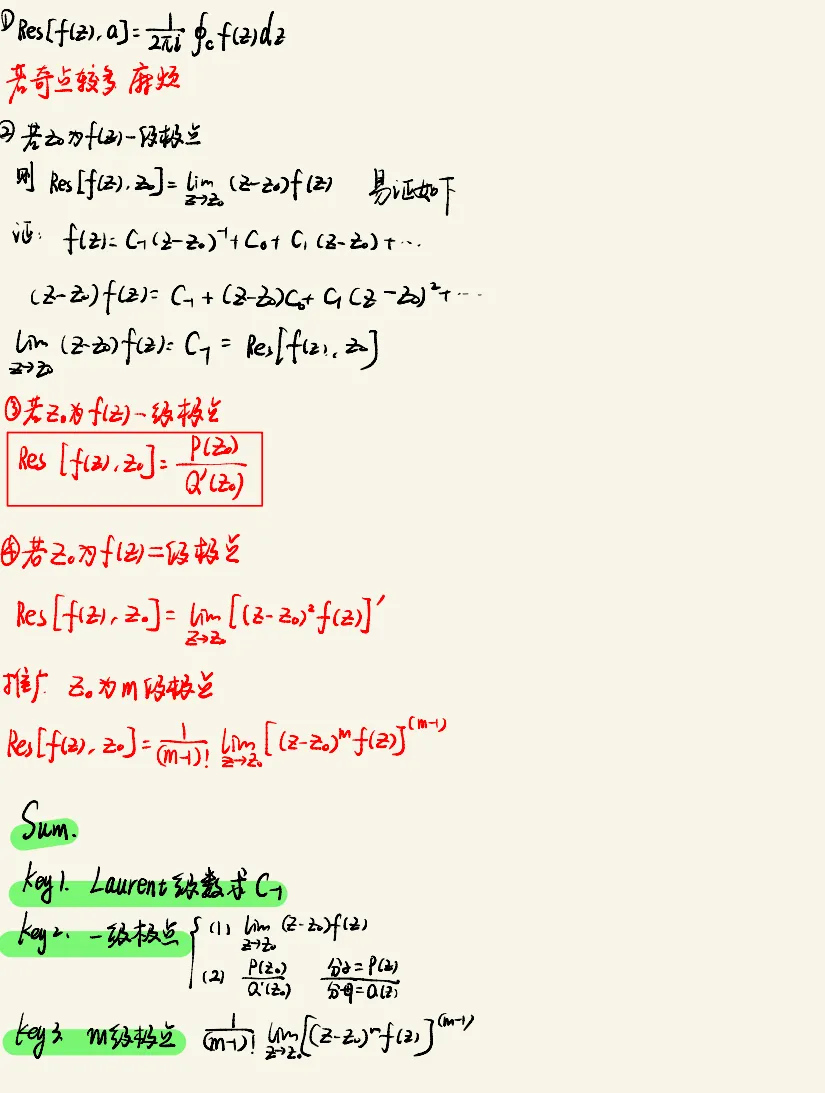 ① Res[f(z), a] = 1/(2πi) ∮_c f(z)dz
若奇点较多 麻烦
② 若z₀为f(z)一级极点
则 Res[f(z), z₀] = lim_{z→z₀} (z-z₀)f(z) 易证如下
证: f(z) = C₋₁(z-z₀)⁻¹ + C₀ + C₁(z-z₀) + ⋯
(z-z₀)f(z) = C₋₁ + (z-z₀)C₀ + C₁(z-z₀)² + ⋯
lim_{z→z₀} (z-z₀)f(z) = C₋₁ = Res[f(z), z₀]
③ 若z₀为f(z)一级极点
Res[f(z), z₀] = P(z₀)/Q'(z₀)
④ 若z₀为f(z)二级极点
Res[f(z), z₀] = lim_{z→z₀} [(z-z₀)²f(z)]'
推广. z₀为m级极点
Res[f(z), z₀] = 1/(m-1)! lim_{z→z₀} [(z-z₀)^m f(z)]^(m-1)
Sum.
key1. Laurent级数求C₋₁
key2. 一级极点 { (1) lim_{z→z₀} (z-z₀)f(z)
(2) P(z₀)/Q'(z₀) 分子=P(z)/分母=Q(z)
key3. m级极点 1/(m-1)! lim_{z→z₀} [(z-z₀)^m f(z)]^(m-1)